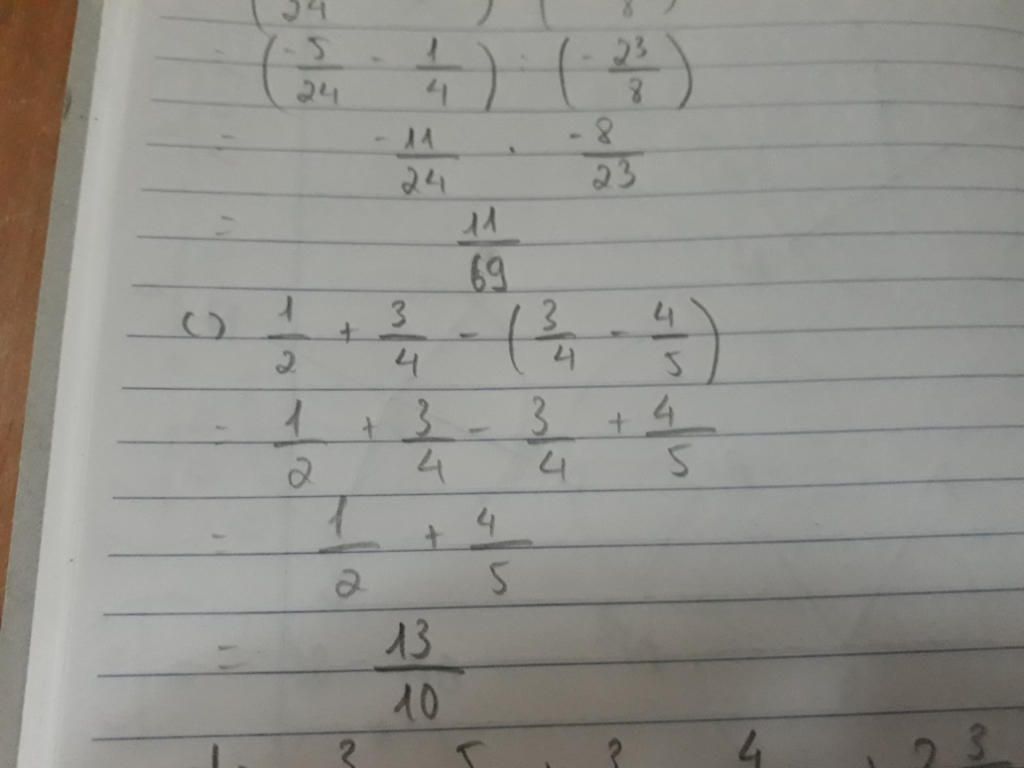 (-5/24 - 1/4) : (-23/8)
= -11/24 . -8/23
= 11/69
c) 1/2 + 3/4 - (3/4 - 4/5)
= 1/2 + 3/4 - 3/4 + 4/5
= 1/2 + 4/5
= 13/10